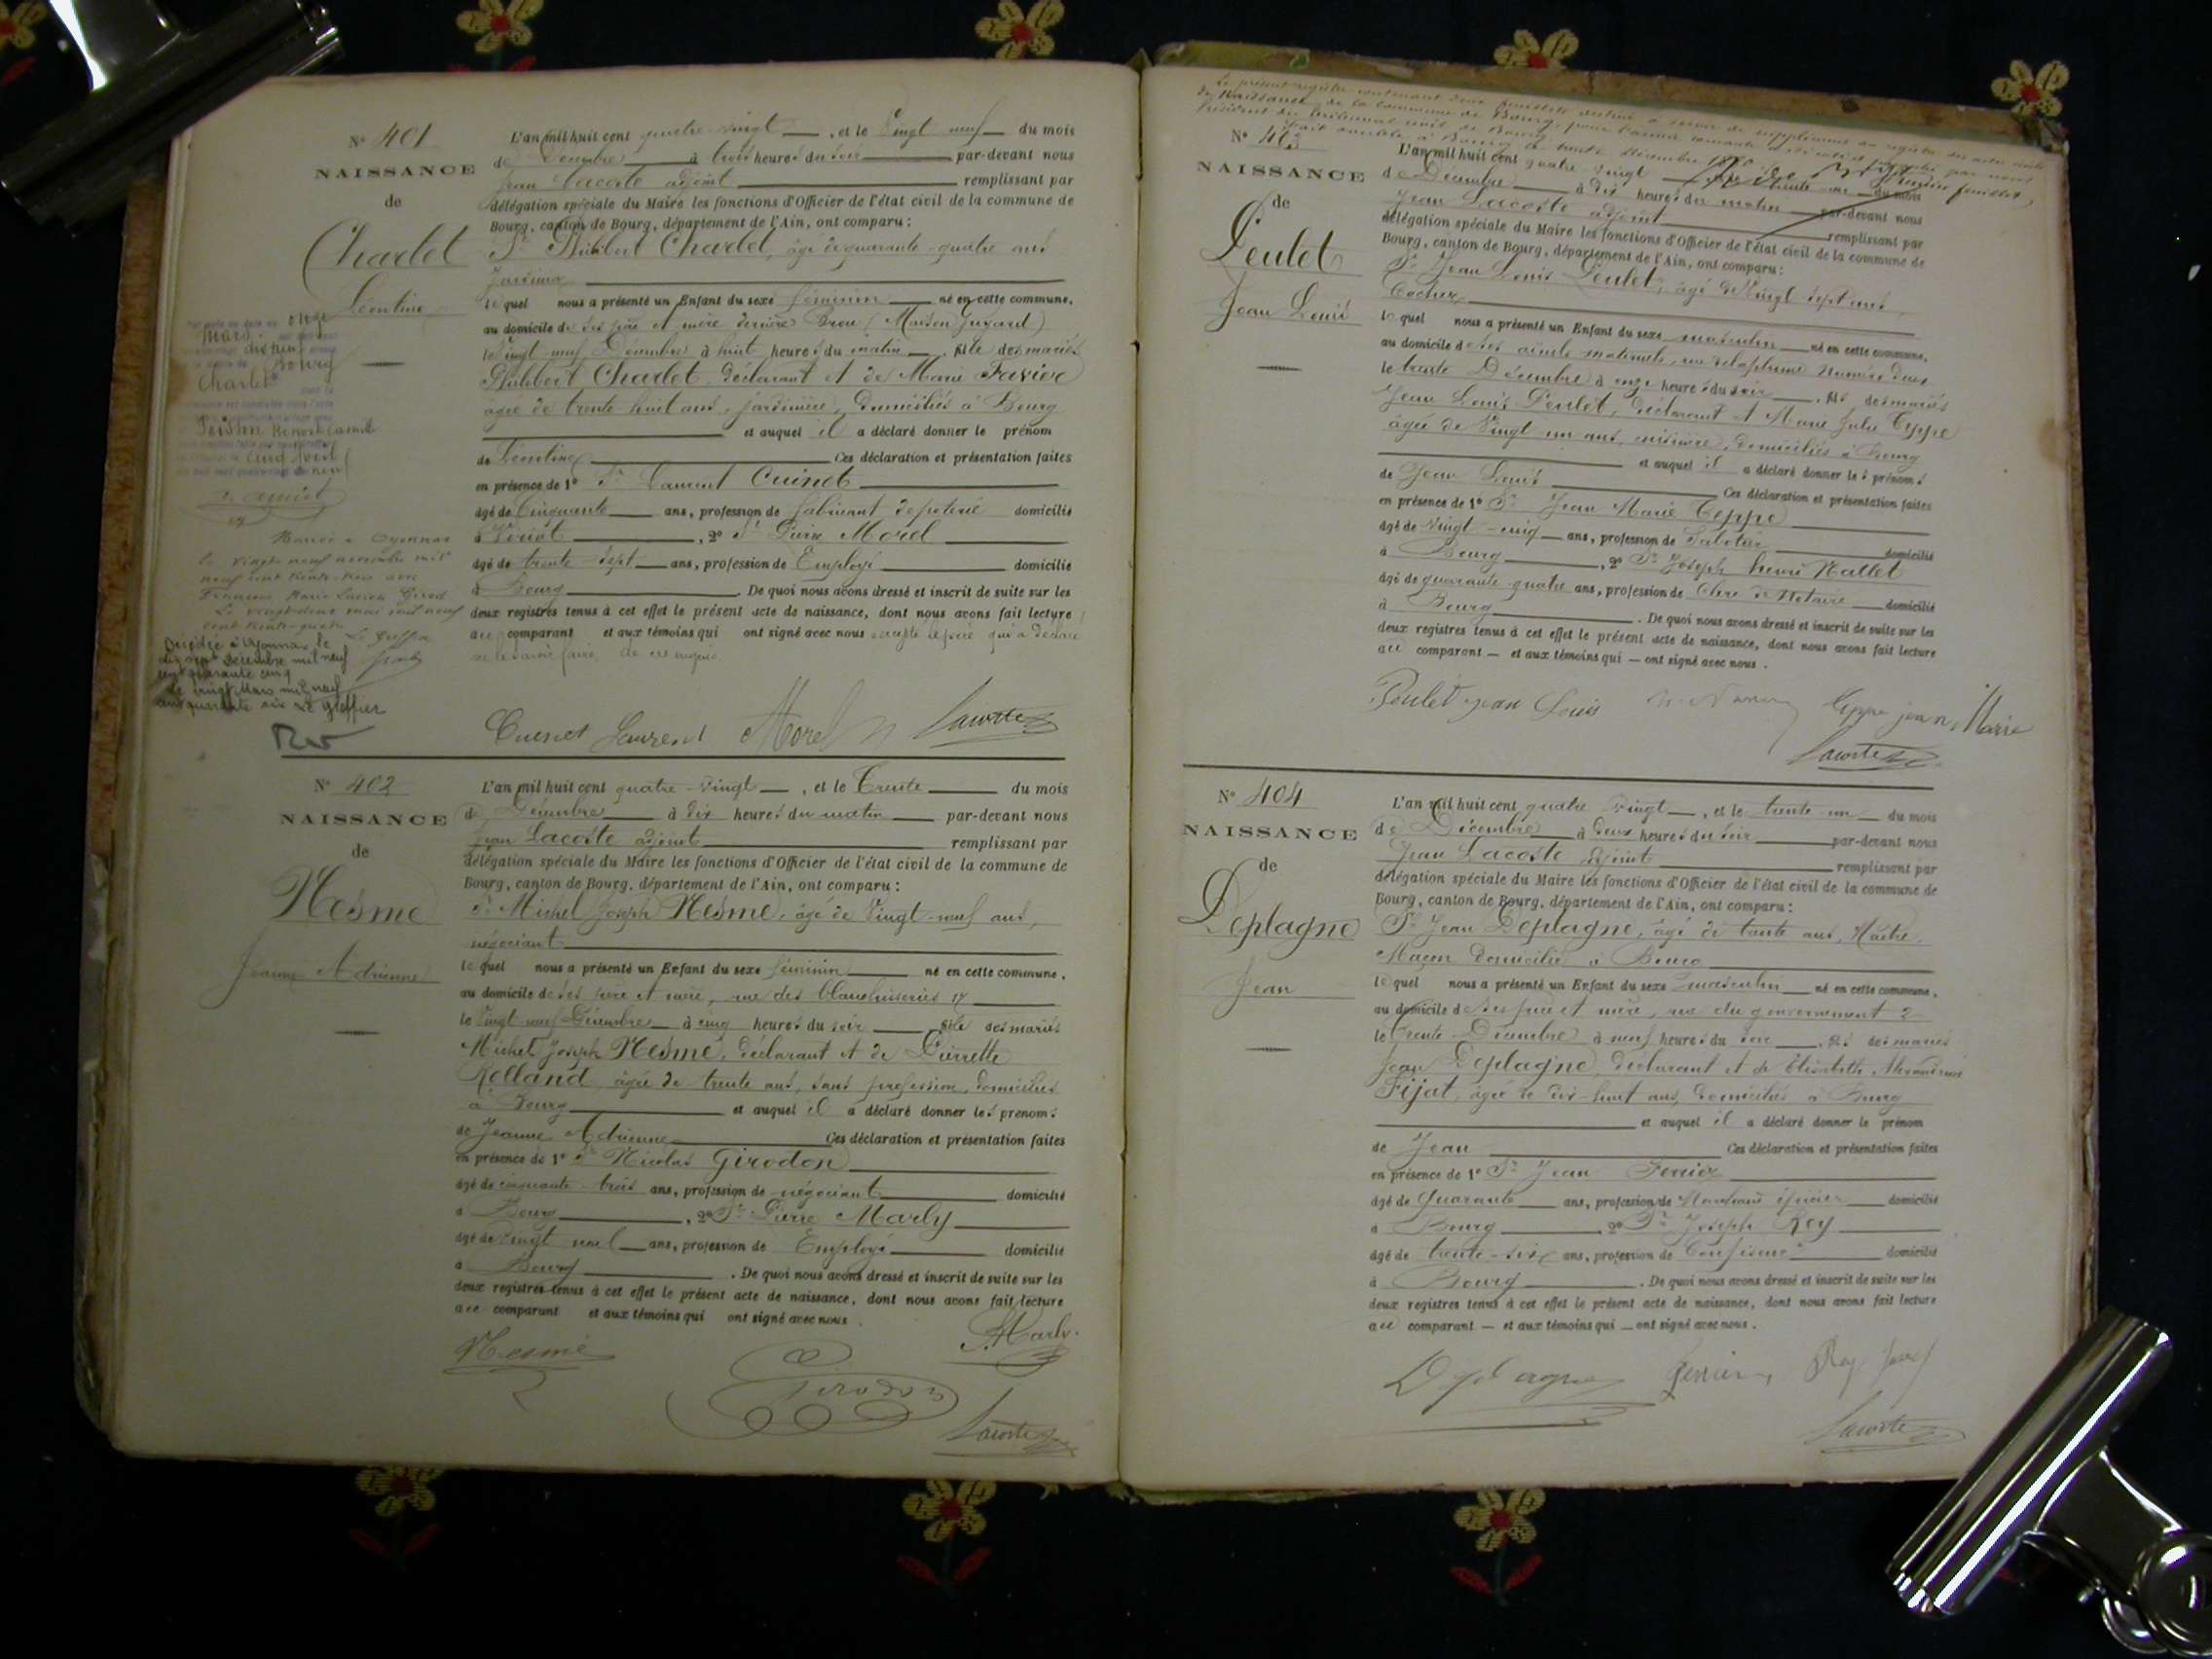 N° 401
NAISSANCE
de
Charlet
Léontine
L'an mil huit cent quatre-vingt, et le Vingt neuf du mois
de Décembre à trois heures du soir par-devant nous
Jean Lacoste adjoint remplissant par
délégation spéciale du Maire les fonctions d'Officier de l'état civil de la commune de
Bourg, canton de Bourg, département de l'Ain, ont comparu :
Sr Philibert Charlet, âgé de quarante-quatre ans
Jardinier
lequel nous a présenté un Enfant du sexe féminin né en cette commune,
au domicile de ses père et mère derrière Brou (Maison
le Vingt-neuf Décembre à huit heures du matin, fille des mariés
Philibert Charlet, déclarant et de Marie Favier
âgée de trente-huit ans, jardinière, domiciliés à Bourg
et auquel il a déclaré donner le prénom
de Léontine Ces déclaration et présentation faites
en présence de 1° Sr Laurent Cuinet
âgé de Cinquante ans, profession de fabricant de poterie domicilié
à Viriat, 2° Sr Pierre Morel
âgé de trente-sept ans, profession de Employé domicilié
à Bourg. De quoi nous avons dressé et inscrit de suite sur les
deux registres tenus à cet effet le présent acte de naissance, dont nous avons fait lecture
au comparant et aux témoins qui ont signé avec nous excepté le père qui a déclaré
ne le savoir faire, de ce requis.
mars
Bourg
Charlet
cinq Avril
Mariée à Oyonnax
le vingt neuf novembre mil
neuf cent trente-trois avec
François Marie Lucien Girod
Le vingt-deux mai mil neuf
cent trente-quatre
Le Greffier
Décédée à Oyonnax le
dix sept décembre mil neuf
cent quarante cinq
Le vingt Mars mil neuf
cent quarante six Le Greffier
Cuinet Laurent Morel Lacoste
N° 402
NAISSANCE
de
Nesme
Jeanne Adrienne
L'an mil huit cent quatre-vingt, et le Trente du mois
de Décembre à dix heures du matin par-devant nous
Jean Lacoste adjoint remplissant par
délégation spéciale du Maire les fonctions d'Officier de l'état civil de la commune de
Bourg, canton de Bourg, département de l'Ain, ont comparu :
Sr Michel Joseph Nesme, âgé de Vingt-neuf ans,
négociant
lequel nous a présenté un Enfant du sexe féminin né en cette commune,
au domicile de ses père et mère, rue des blanchisseries 17
le Vingt-neuf Décembre à cinq heures du soir fille des mariés
Michel Joseph Nesme, déclarant et de Pierrette
Rolland, âgée de trente ans, sans profession, domiciliés
à Bourg et auquel il a déclaré donner les prénoms
de Jeanne Adrienne Ces déclaration et présentation faites
en présence de 1° Sr Nicolas Girodon
âgé de cinquante-trois ans, profession de négociant domicilié
à Bourg, 2° Sr Pierre Marly
âgé de Vingt neuf ans, profession de Employé domicilié
à Bourg. De quoi nous avons dressé et inscrit de suite sur les
deux registres tenus à cet effet le présent acte de naissance, dont nous avons fait lecture
au comparant et aux témoins qui ont signé avec nous.
Nesme Girodon Marly
Lacoste
Le présent registre contenant deux feuillets destiné à servir de supplément au registre des actes civils
de Naissance de la commune de Bourg, pour l'année courante
Président du tribunal civil de Bourg
premier feuillet
N° 403
NAISSANCE
de
Peulet
Jean Louis
L'an mil huit cent quatre vingt trente-un du mois
de Décembre à dix heures du matin par-devant nous
Jean Lacoste adjoint remplissant par
délégation spéciale du Maire les fonctions d'Officier de l'état civil de la commune de
Bourg, canton de Bourg, département de l'Ain, ont comparu :
Sr Jean Louis Peulet, âgé de Vingt sept ans,
Cocher
lequel nous a présenté un Enfant du sexe masculin né en cette commune,
au domicile de ses aïeuls maternels, Numéro deux
le trente Décembre à onze heures du soir, fils des mariés
Jean Louis Peulet, déclarant et Marie Julie Teppe
âgée de Vingt-un ans, cuisinière, domiciliés à Bourg
et auquel il a déclaré donner les prénoms
de Jean Louis Ces déclaration et présentation faites
en présence de 1° Sr Jean Marie Teppe
âgé de vingt-cinq ans, profession de Sabotier domicilié
à Bourg, 2° Sr Joseph henri Nallet
âgé de quarante-quatre ans, profession de Clerc de Notaire domicilié
à Bourg. De quoi nous avons dressé et inscrit de suite sur les
deux registres tenus à cet effet le présent acte de naissance, dont nous avons fait lecture
au comparant — et aux témoins qui — ont signé avec nous.
Peulet Jean Louis Teppe jean Marie
Lacoste
N° 404
NAISSANCE
de
Deplagne
Jean
L'an mil huit cent quatre vingt, et le trente-un du mois
de Décembre à deux heures du soir par-devant nous
Jean Lacoste adjoint remplissant par
délégation spéciale du Maire les fonctions d'Officier de l'état civil de la commune de
Bourg, canton de Bourg, département de l'Ain, ont comparu :
Sr Jean Deplagne, âgé de trente ans, Maître
Maçon domicilié à Bourg
lequel nous a présenté un Enfant du sexe masculin né en cette commune,
au domicile de ses père et mère, rue du gouvernement 2
le trente Décembre à neuf heures du soir, fils des mariés
Jean Deplagne, déclarant et de Elisabeth Alexandrine
Fijat, âgée de dix-huit ans, domiciliés à Bourg
et auquel il a déclaré donner le prénom
de Jean Ces déclaration et présentation faites
en présence de 1° Sr Jean Ferrier
âgé de Quarante ans, profession de Marchand épicier domicilié
à Bourg, 2° Sr Joseph Rey
âgé de trente-six ans, profession de Confiseur domicilié
à Bourg. De quoi nous avons dressé et inscrit de suite sur les
deux registres tenus à cet effet le présent acte de naissance, dont nous avons fait lecture
au comparant — et aux témoins qui — ont signé avec nous.
Deplagne Ferrier Rey
Lacoste